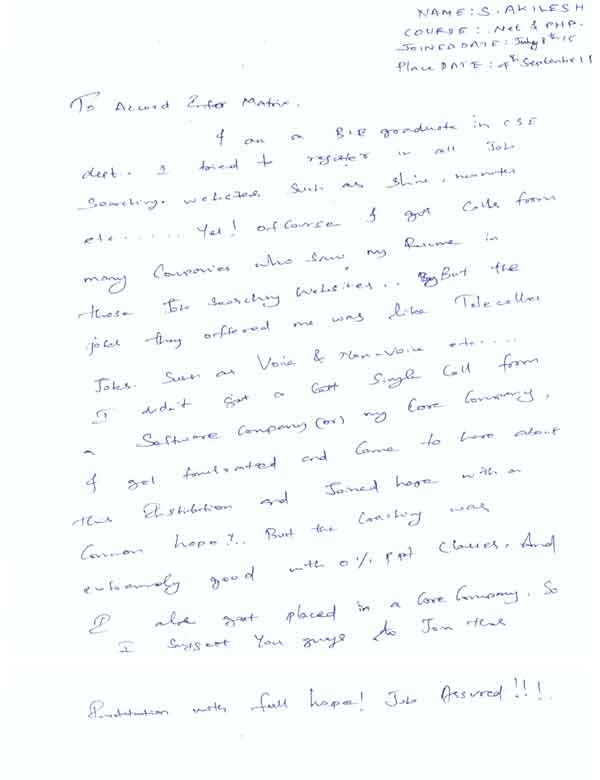 NAME: S. AKILESH
COURSE: .Net & PHP.
JOINED DATE: July 8th 15
Place DATE: 4th September 15
To Accord Infor Matrix.
I am a B.E graduate in CSE
dept. I tried to register in all Job
Searching. websites such as Shine,
etc...... Yet! ofCourse I got Calls from
many Companies who saw my Resume in
those Job Searching Websites.. But the
jobs they offered me was like Telecaller
Jobs. Such as Voice & Non-Voice etc.....
I didn't got a Single Call from
a Software Company (or) my Core Company,
I got and Came to know about
this Institution and Joined here with a
Common hope!.. But the Coaching was
extremely good with 0% ppt Classes. And
I also got placed in a Core Company. So
I suggest You guys to Join this
Institution with full hope! Job Assured!!!.